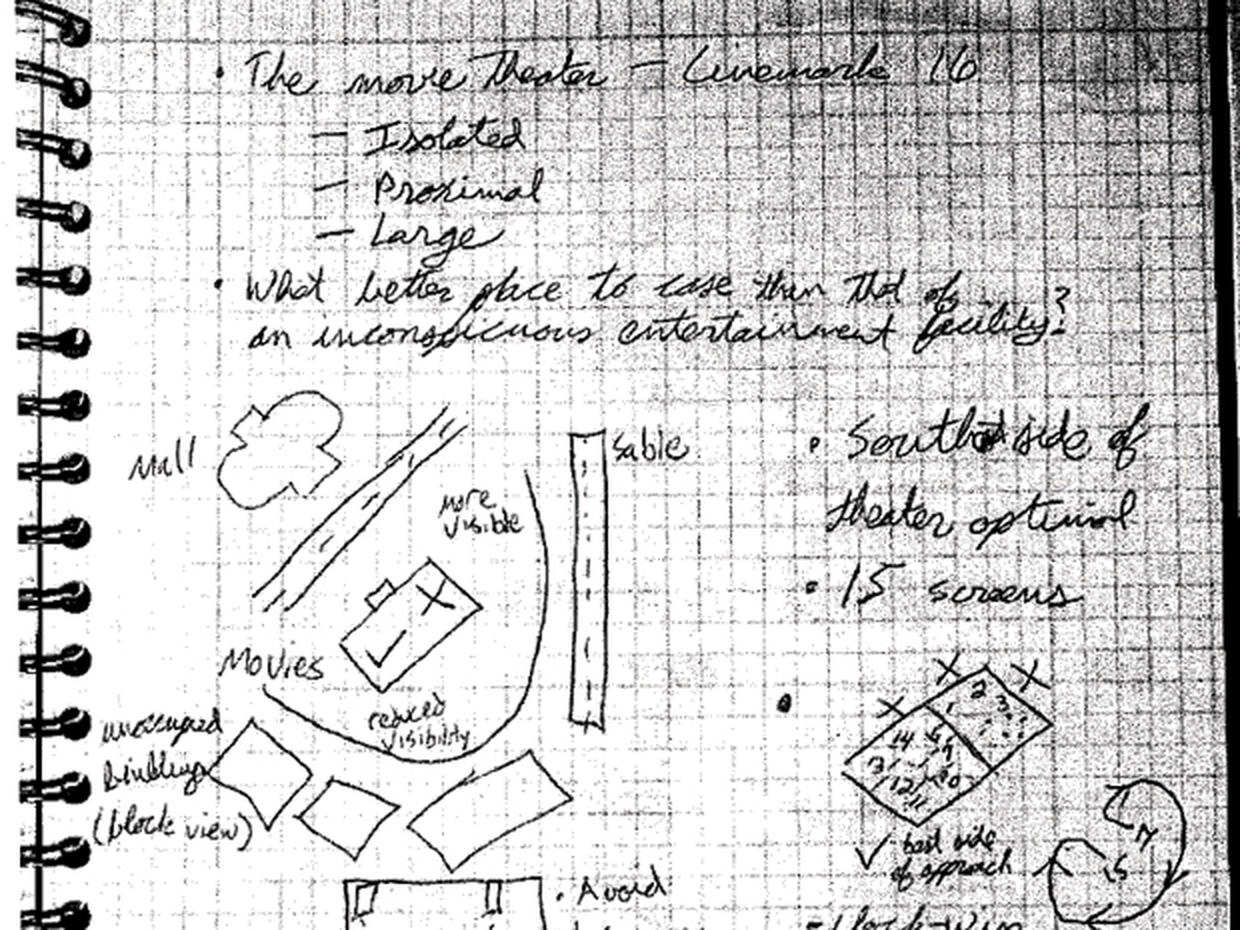 • The movie Theater – Cinemark 16
– Isolated
– Proximal
– Large
• What better place to case than that of
an inconspicuous entertainment facility?
Mall
Sable
more
visible
X
✓
Movies
reduced
visibility
unoccupied
buildings
(block view)
• South side of
theater optimal
• 15 screens
X X
X
2
1 3
14
12
11
✓ best side
of approach
N
S
• Avoid